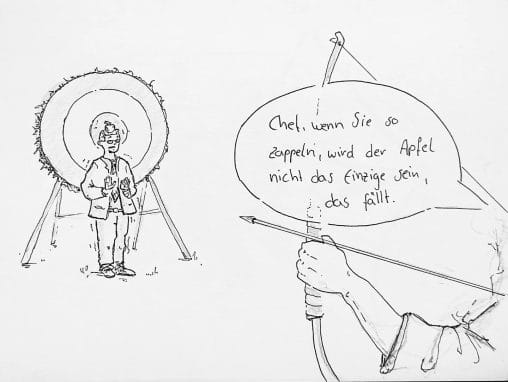 Chef, wenn Sie so
zappeln, wird der Apfel
nicht das Einzige sein,
das fällt.